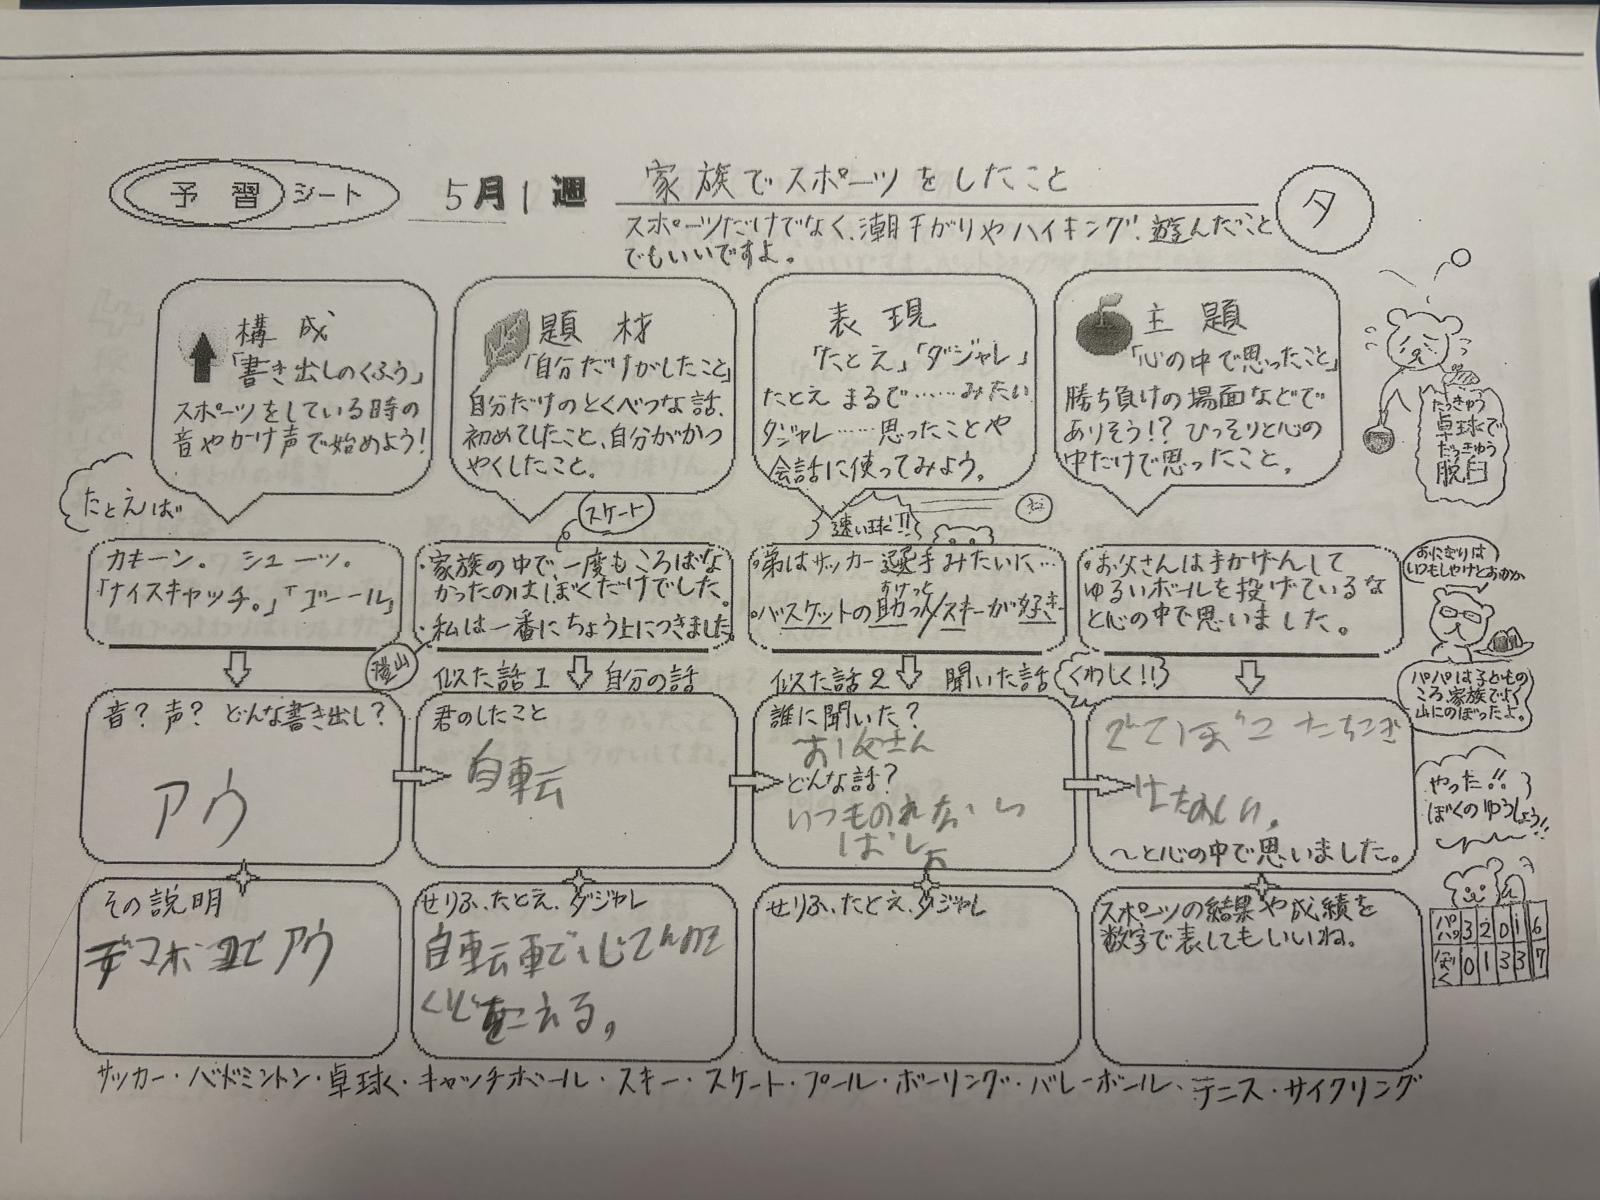 予習シート
5月1週
家族でスポーツをしたこと
スポーツだけでなく、潮干がりやハイキング、遊んだこと
でもいいですよ。
タ
構成
「書き出しのくふう」
スポーツをしている時の
音やかけ声で始めよう!
題材
「自分だけがしたこと」
自分だけのとくべつな話、
初めてしたこと、自分がかつ
やくしたこと。
表現
「たとえ」「ダジャレ」
たとえ まるで……みたい
ダジャレ……思ったことや
会話に使ってみよう。
主題
「心の中で思ったこと」
勝ち負けの場面などで
ありそう!? ひっそりと心の
中だけで思ったこと。
たっきゅう
卓球で
だっきゅう
脱臼
たとえば
カキーン。 シューッ。
「ナイスキャッチ。」「ゴーール」
スケート
・家族の中で、一度もころばな
かったのはぼくだけでした。
・私は一番にちょう上につきました。
登山
速い球!!
・弟はサッカー選手みたいに…
すけっと
・バスケットの助っ人/スキーが好き
・お父さんは手かげんして
ゆるいボールを投げているな
と心の中で思いました。
おにぎりは
いつもしゃけとおかか
パパは子どもの
ころ、家族でよく
山にのぼったよ。
音? 声? どんな書き出し?
アウ
似た話1 自分の話
君のしたこと
自転
似た話2 聞いた話
誰に聞いた?
お父さん
どんな話?
くわしく!!
〜と心の中で思いました。
やった!!
ぼくのゆうしょう!!
その説明
せりふ、たとえ、ダジャレ
せりふ、たとえ、ダジャレ
スポーツの結果や成績を
数字で表してもいいね。
パパ 3 2 0 1 6
ぼく 0 1 3 3 7
サッカー・バドミントン・卓球く・キャッチボール・スキー・スケート・プール・ボーリング・バレーボール、テニス・サイクリング